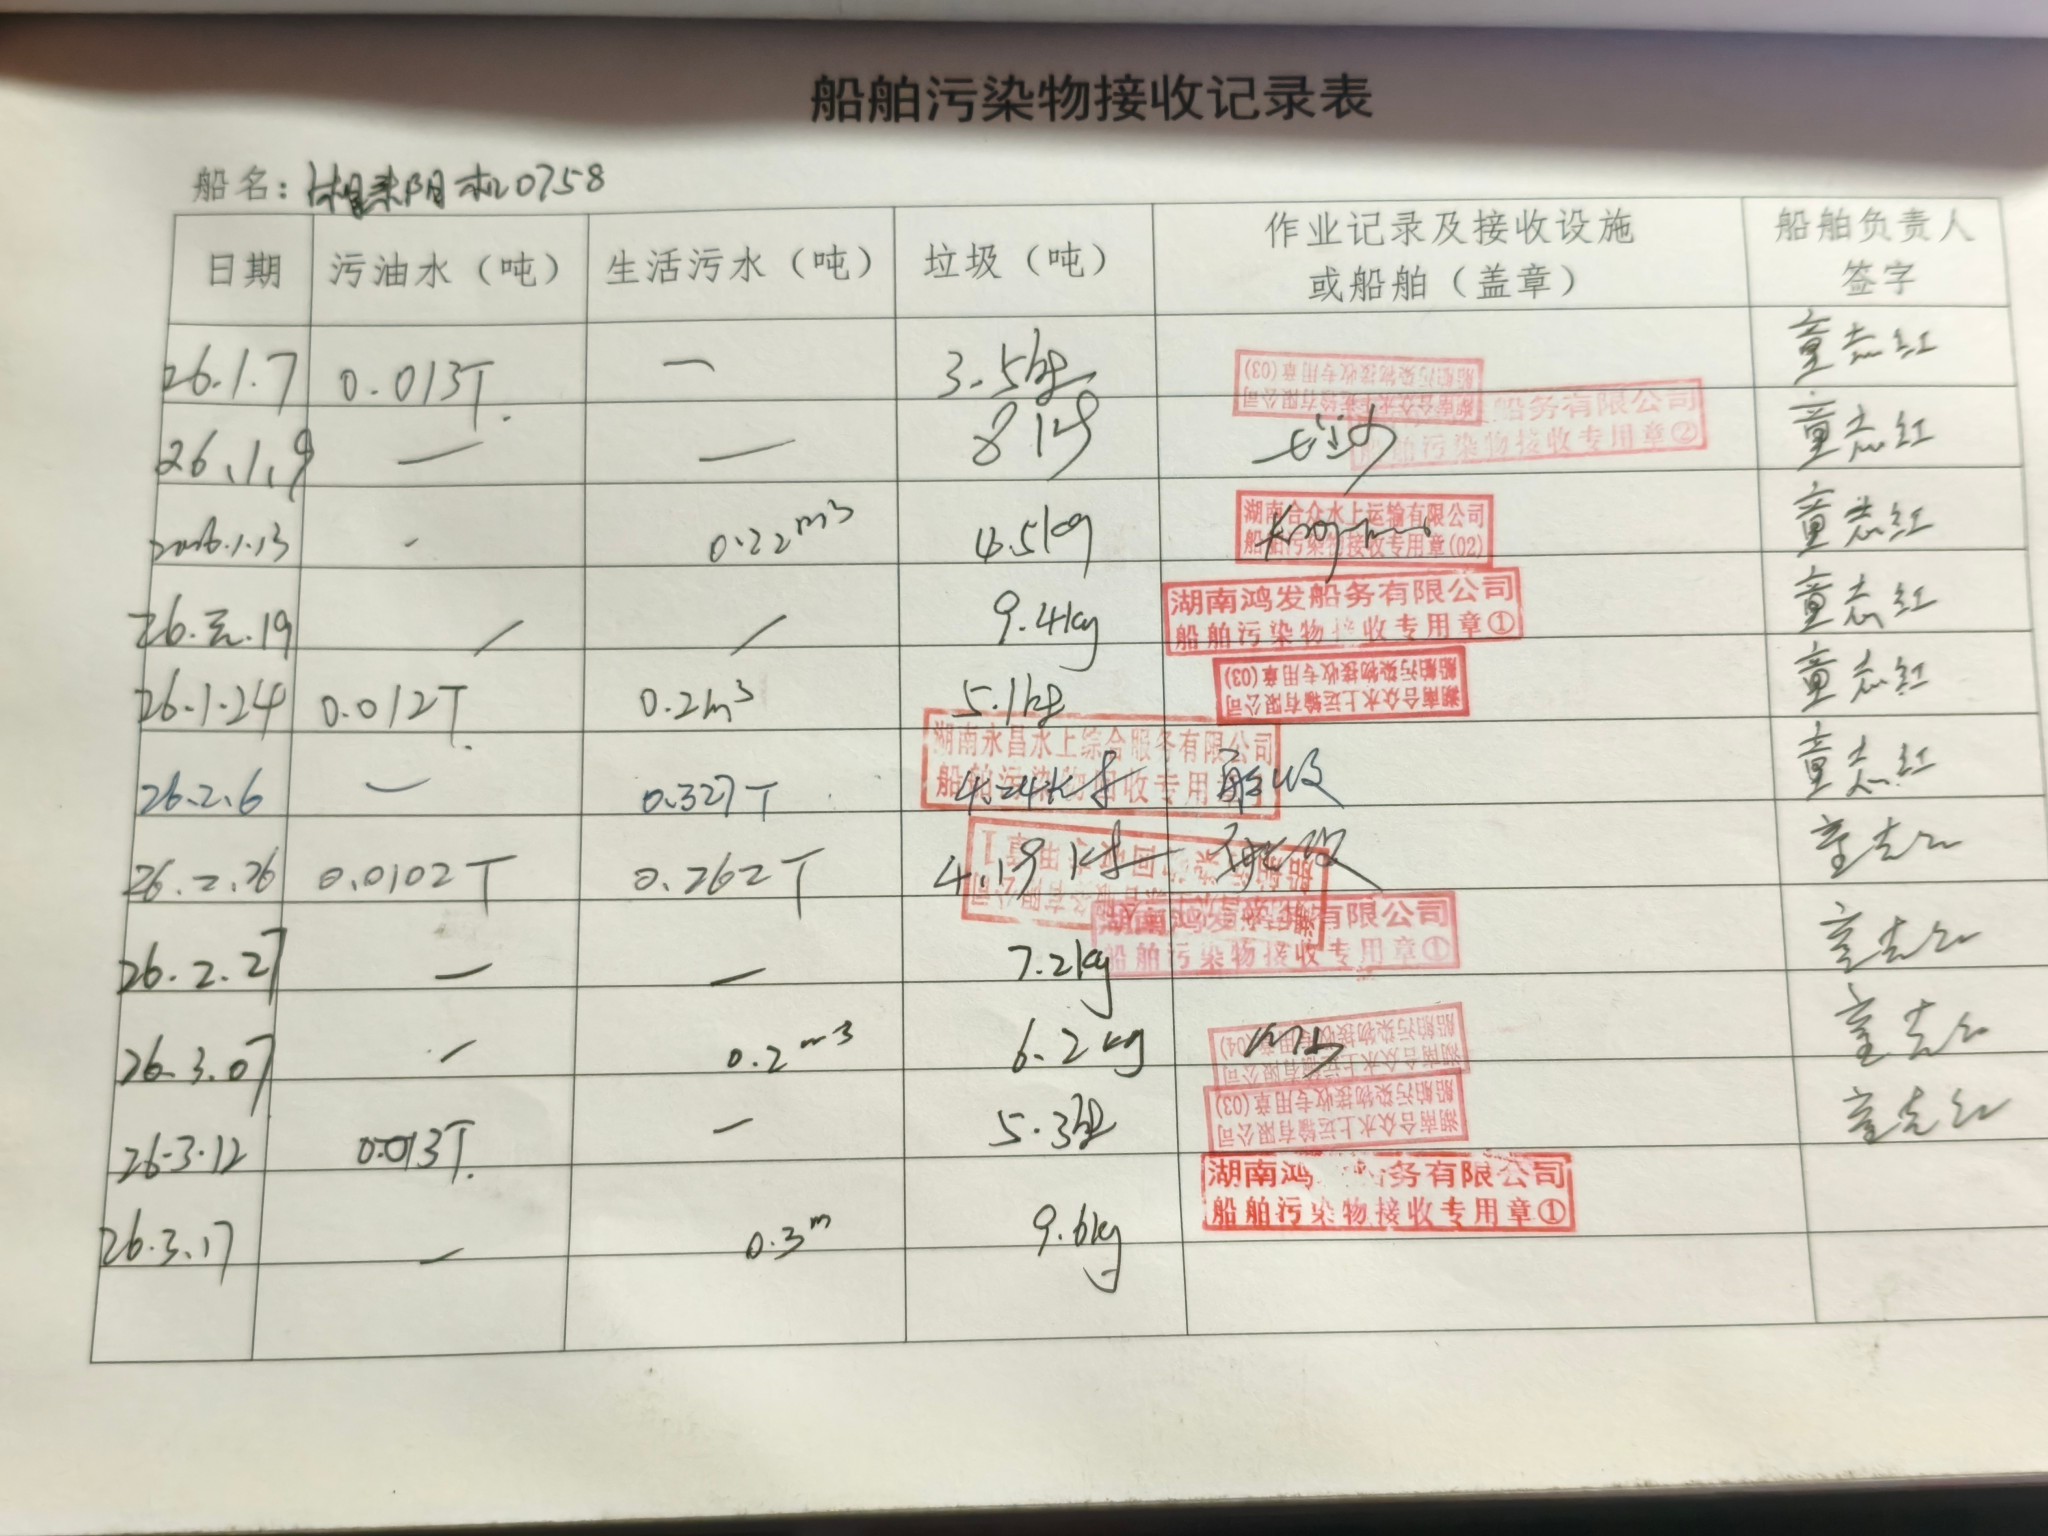 船舶污染物接收记录表
船名：湘耒阳机0758
日期 污油水（吨） 生活污水（吨） 垃圾（吨） 作业记录及接收设施或船舶（盖章） 船舶负责人签字
26.1.7 0.013T. — 3.5kg 湖南合众水上运输有限公司 船舶污染物接收专用章(03) 童志红
26.1.9 — — 8kg 船务有限公司 船舶污染物接收专用章② 童志红
2026.1.13 - 0.22m3 4.5kg 湖南合众水上运输有限公司 船舶污染物接收专用章(02) 童志红
26.元.19 / / 9.4kg 湖南鸿发船务有限公司 船舶污染物接收专用章① 童志红
26.1.24 0.012T. 0.2m3 5.1kg 湖南合众水上运输有限公司 船舶污染物接收专用章(03) 童志红
26.2.6 — 0.327T 4.24kg 湖南永昌水上综合服务有限公司 船舶污染物回收专用章 童志红
26.2.26 0.0102T 0.262T 4.19kg 童志红
26.2.27 — — 7.2kg 湖南鸿发船务有限公司 船舶污染物接收专用章① 童志红
26.3.07 - 0.2m3 6.2kg 湖南合众水上运输有限公司 船舶污染物接收专用章(04) 童志红
26.3.12 0.013T. — 5.3kg 湖南合众水上运输有限公司 船舶污染物接收专用章(03) 童志红
26.3.17 — 0.3m 9.6kg 湖南鸿 务有限公司 船舶污染物接收专用章①